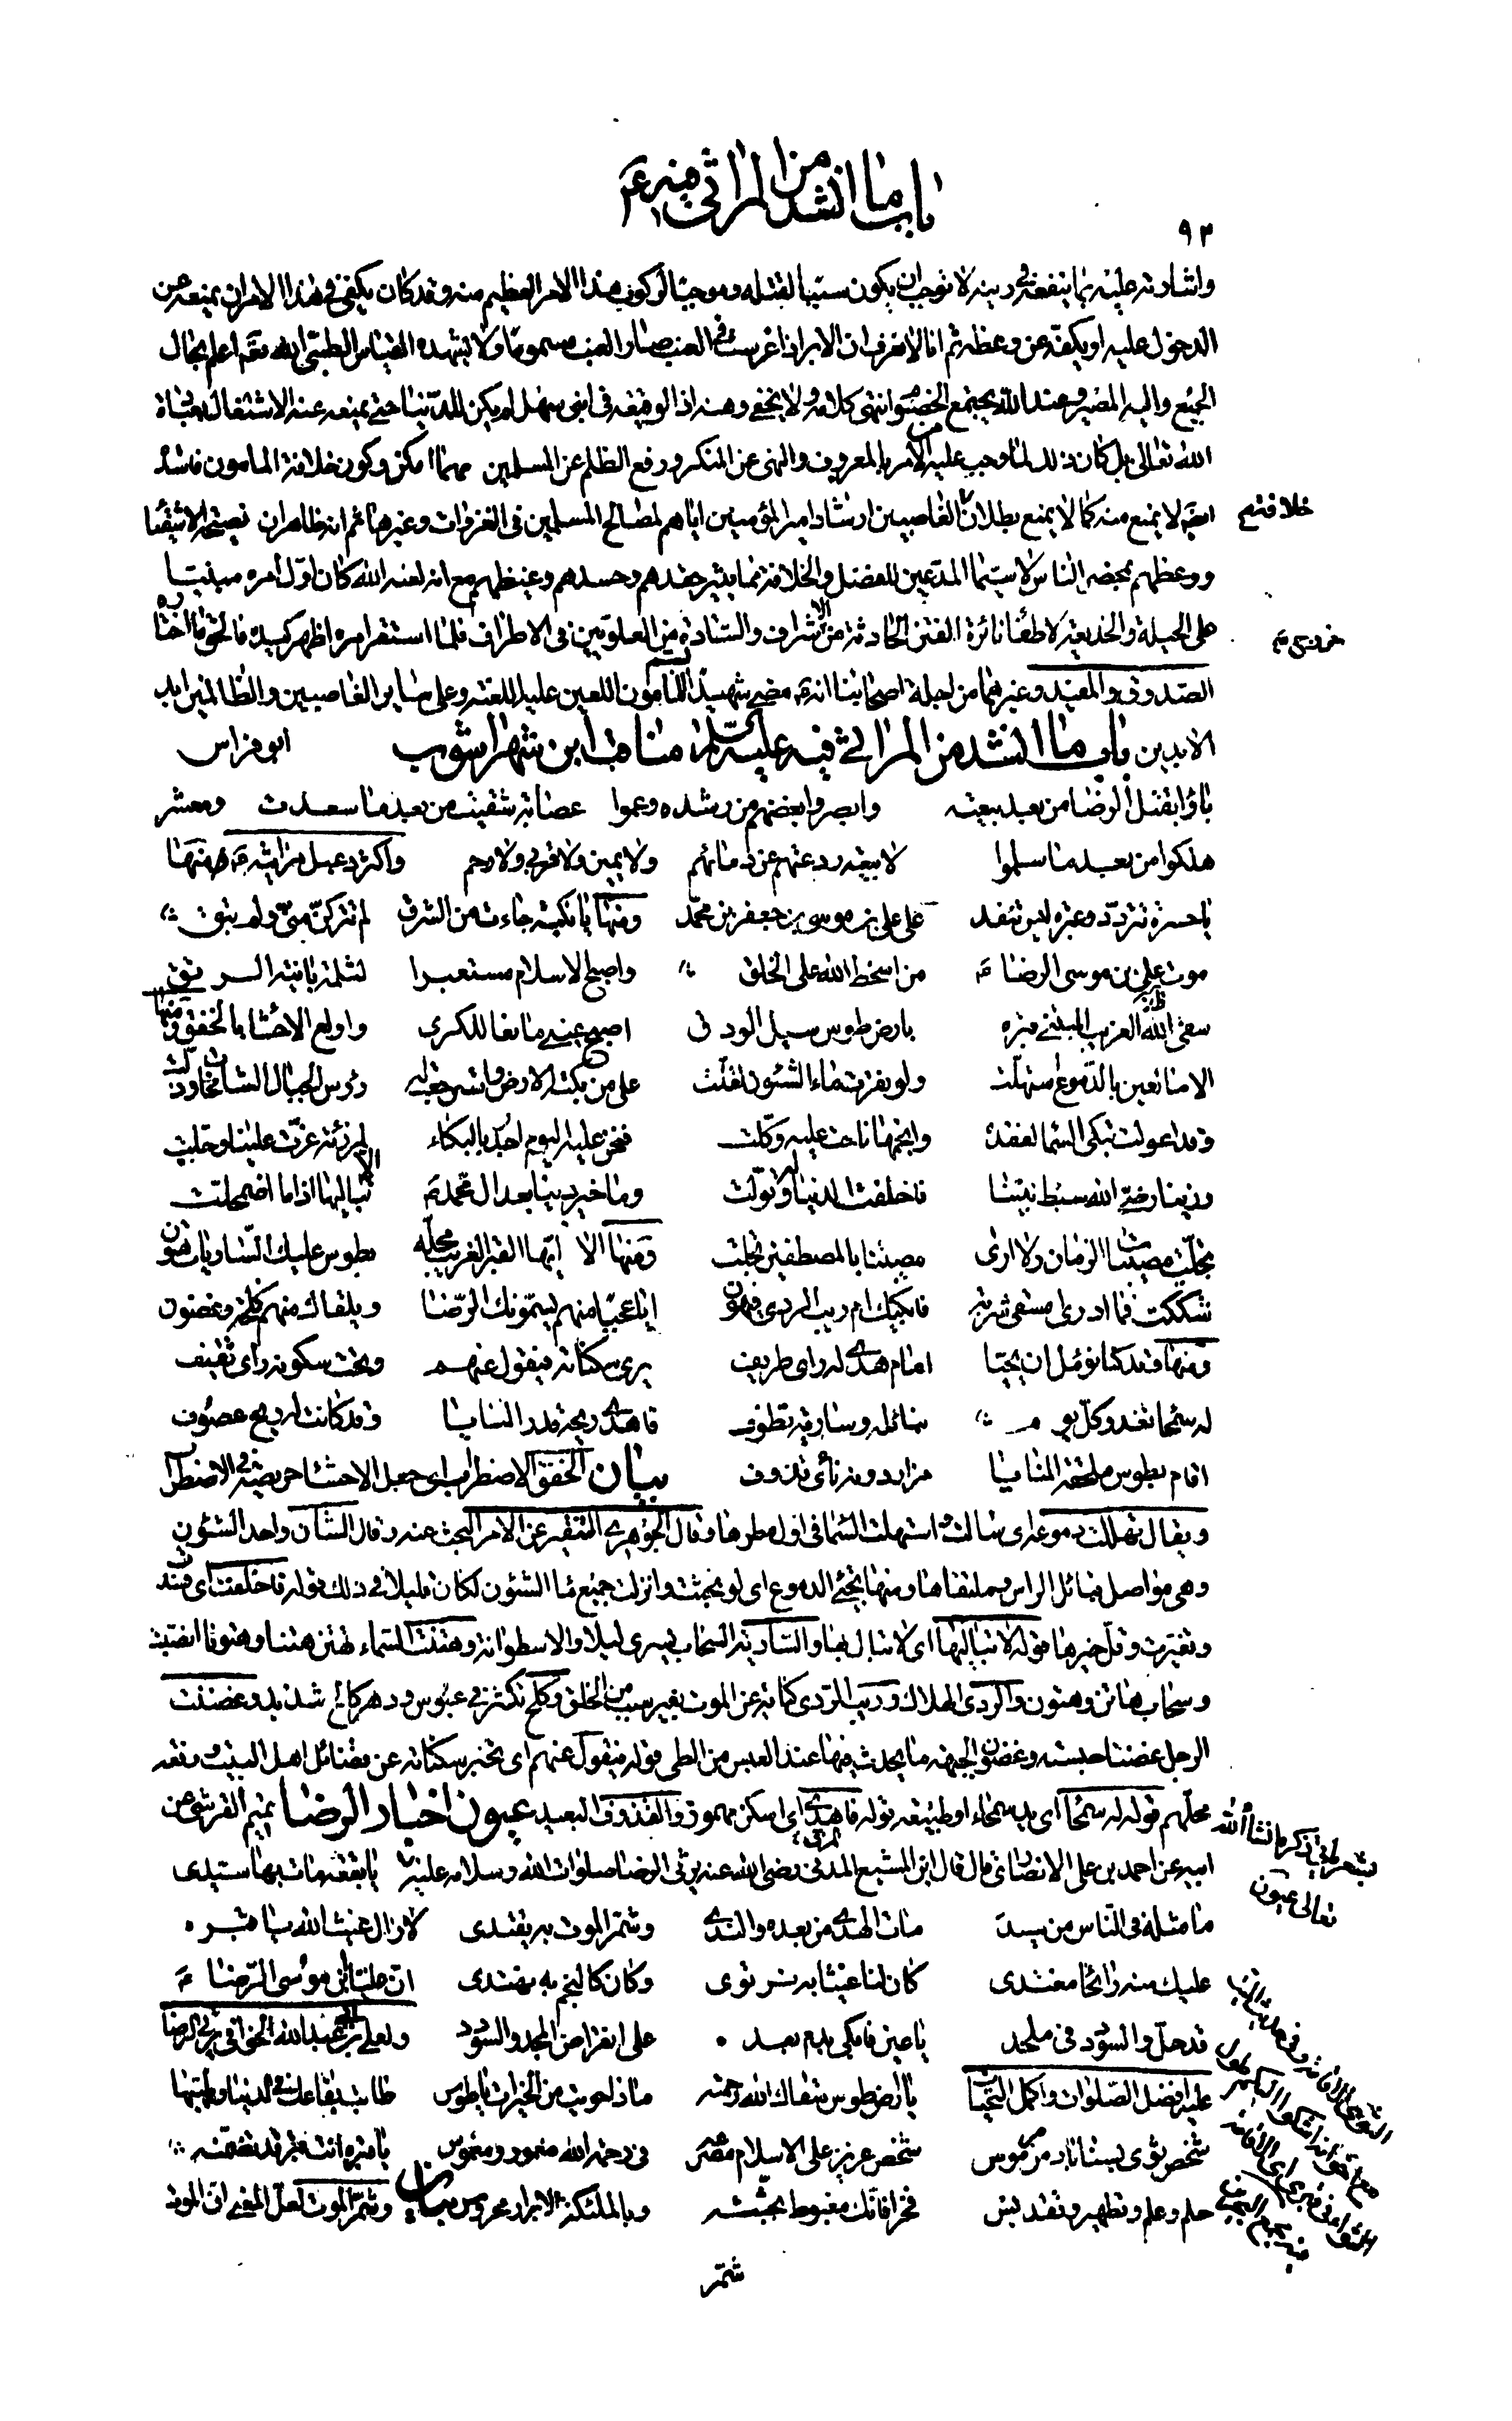 باب ما انشد من المراثي فيه ع
٩٣
واشارته عليه بما ينفعه في دينه لا توجب ان يكون سببا لقتله وموجبا لركوب هذا الامر العظيم منه وقد كان يكفي في هذا الامر ان يمنعه عن
الدخول عليه او يكفه عن وعظه ثم انا لا نعرف ان الابر اذا غرست في العنب صار العنب مسموما ولا يشهد له القياس الطبي والله تعه اعلم بحال
الجميع واليه المصير وعند الله يجتمع الخصوم انتهى كلامه ولا يخفى وهنه اذ الوقيعة في ابني سهل لم يكن للدنيا حتى يمنعه عنه الاشتغال بعبادة
الله تعالى بل كان ذلك لما وجب عليه من الامر بالمعروف والنهي عن المنكر ورفع الظلم عن المسلمين مهما امكن وكون خلافة المامون فاسدة
ايضا لا يمنع منه كما لا يمنع بطلان الغاصبين ارشاد امير المؤمنين اياهم لمصالح المسلمين في الغزوات وغيرها ثم انه ظاهر ان نصيحة الاشقياء
خلافتهم
ووعظهم بمحضر الناس لا سيما المدعين للفضل والخلافة مما يثير حقدهم وحسدهم وغيظهم مع انه لعنه الله كان اول امره مبنيا
على الحيلة والخديعة لاطفاء نائرة الفتن الحادثة من خروج الاشراف والسادة من العلويين في الاطراف فلما استقر امره اظهر كيده فالحق ما اختاره
الصدوق والمفيد وغيرهما من اجلة اصحابنا انه ع مضى شهيدا بسم المامون اللعين عليه اللعنة وعلى ساير الغاصبين والظالمين ابد
الابدين باب ما انشد من المراثي فيه عليه السلام مناقب ابن شهراشوب ابو فراس
باؤا بقتل الرضا من بعد بيعته وابصروا بعضهم من رشده وعموا عصابة شقيت من بعد ما سعدت ومعشر
هلكوا من بعد ما سلموا لا بيعة ردعتهم عن دمائهم ولا يمين ولا قربى ولا رحم واكثر دعبل مراثيه ع فمنها
يا حسرة تتردد وعبرة ليس تنفد على علي بن موسى بن جعفر بن محمد ومنها يا نكبة جاءت من الشرق لم تتركن مني ولم تبق
موت علي بن موسى الرضا ع من اسخط الله على الخلق واصبح الاسلام مستعبرا لثلمة باينة الرتق
سقى الله الغريب المبتنى قبره بارض طوس سيل الودق اصبح عيني مانعا للكرى واولع الاحشاء بالخفق ومنها
الا ما لعين بالدموع استهلت ولو نقرت ماء الشئون لقلت على من بكته الارض واسترجعت له رؤس الجبال الشامخات وذلت
وقد اعولت تبكي السماء لفقده وانجمها ناحت عليه وكلت فنحن عليه اليوم اجدر بالبكاء لمرزئة عزت علينا وجلت
رزينا رضي الله سبط نبينا فاخلفت الدنيا له وتولت وما خير دنيا بعد ال محمد ع الا لا نباليها اذا ما اضمحلت
تجلت مصيبات الزمان ولا ارى مصيبتنا بالمصطفين تجلت ومنها الا ايها القبر الغريب محله بطوس عليك الساريات هتون
شككت فما ادري امسقى شربة فابكيك ام ريب الردى فيهون ايا عجبا منهم يسمونك الرضا ويلقاك منهم كلحة وغضون
ومنها وقد كنا نؤمل ان يحيا امام هدى له راي طريف يرى سكناته فيقول عنهم وتحت سكونه راي ثقيف
له سمحاء تغدو كل يوم بنائله وسارية تطوف فاهدى ريحه قدر المنايا وقد كانت له ريح عصوف
اقام بطوس ملحفة المنايا مزار دونه نأى قذوف بيان الخفق الاضطراب اي جعل الاحشاء حريصة في الاضطراب
ويقال تهللت دموعه اي سالت واستهلت السماء في اول مطرها وقال الجوهري التنقير عن الامر البحث عنه وقال الشأن واحد الشئون
وهي مواصل قبائل الراس وملتقاها ومنها تجئ الدموع اي لو نجمت وانزلت جميع ماء الشئون لكان قليلا في ذلك قوله فاخلفت اي فسدت
وتغيرت وقل خيرها قوله لا نباليها اي لا نبال بها والسارية السحاب يسري ليلا والاسطوانة وهتنت السماء تهتن هتنا وهتونا انصبت
وسحاب هاتن وهتون والردى الهلاك وريب الردى كناية عن الموت بغير سبب من الخلق وكلح تكشر في عبوس ودهر كالح شديد وغضنت
الرجل غضنا حبسته وغضون الجبهة ما يحدث فيها عند العبس من الطي قوله فيقول عنهم اي تخبر سكناته عن فضائل اهل البيت ورفعة
محلهم قوله له سمحاء اي يد سمحاء او طبيعة قوله فاهدى اي اسكن مهموز والقذوف البعيد عيون اخبار الرضا تميم القرشي عن
ابيه عن احمد بن علي الانصاري قال قال ابن المشيع المدني رضي الله عنه يرثي الرضا صلوات الله وسلامه عليه يا بقعة مات بها سيدي
ما مثله في الناس من سيد مات الهدى من بعده والندى وشمر الموت به يقتدي لا زال غيث الله يا قبره
عليك منه رائحا مغتدي كان لنا غيثا به نرتوي وكان كالنجم به نهتدي ان عليا بن موسى الرضا ع
قد حل والسؤدد في ملحد يا عين فابكي بدم بعده على انقراض المجد والسؤدد ولعلي بن ابي عبد الله الخوافي يرثي الرضا
عليه افضل الصلوات واكمل التحيات يا ارض طوس سقاك الله رحمته ماذا حويت من الخيرات يا طوس طابت بقاعك في الدنيا وطيبها
شخص ثوى بسناباد مرموس شخص عزيز على الاسلام مصرعه في رحمة الله مغمور ومغموس يا قبره انت قبر قد تضمنه
حلم وعلم وتطهير وتقديس فخرا فانك مغبوط بجثته وبالملئكة الابرار محروس بيان وشمر الموت لعل المعنى ان الموت
شمر